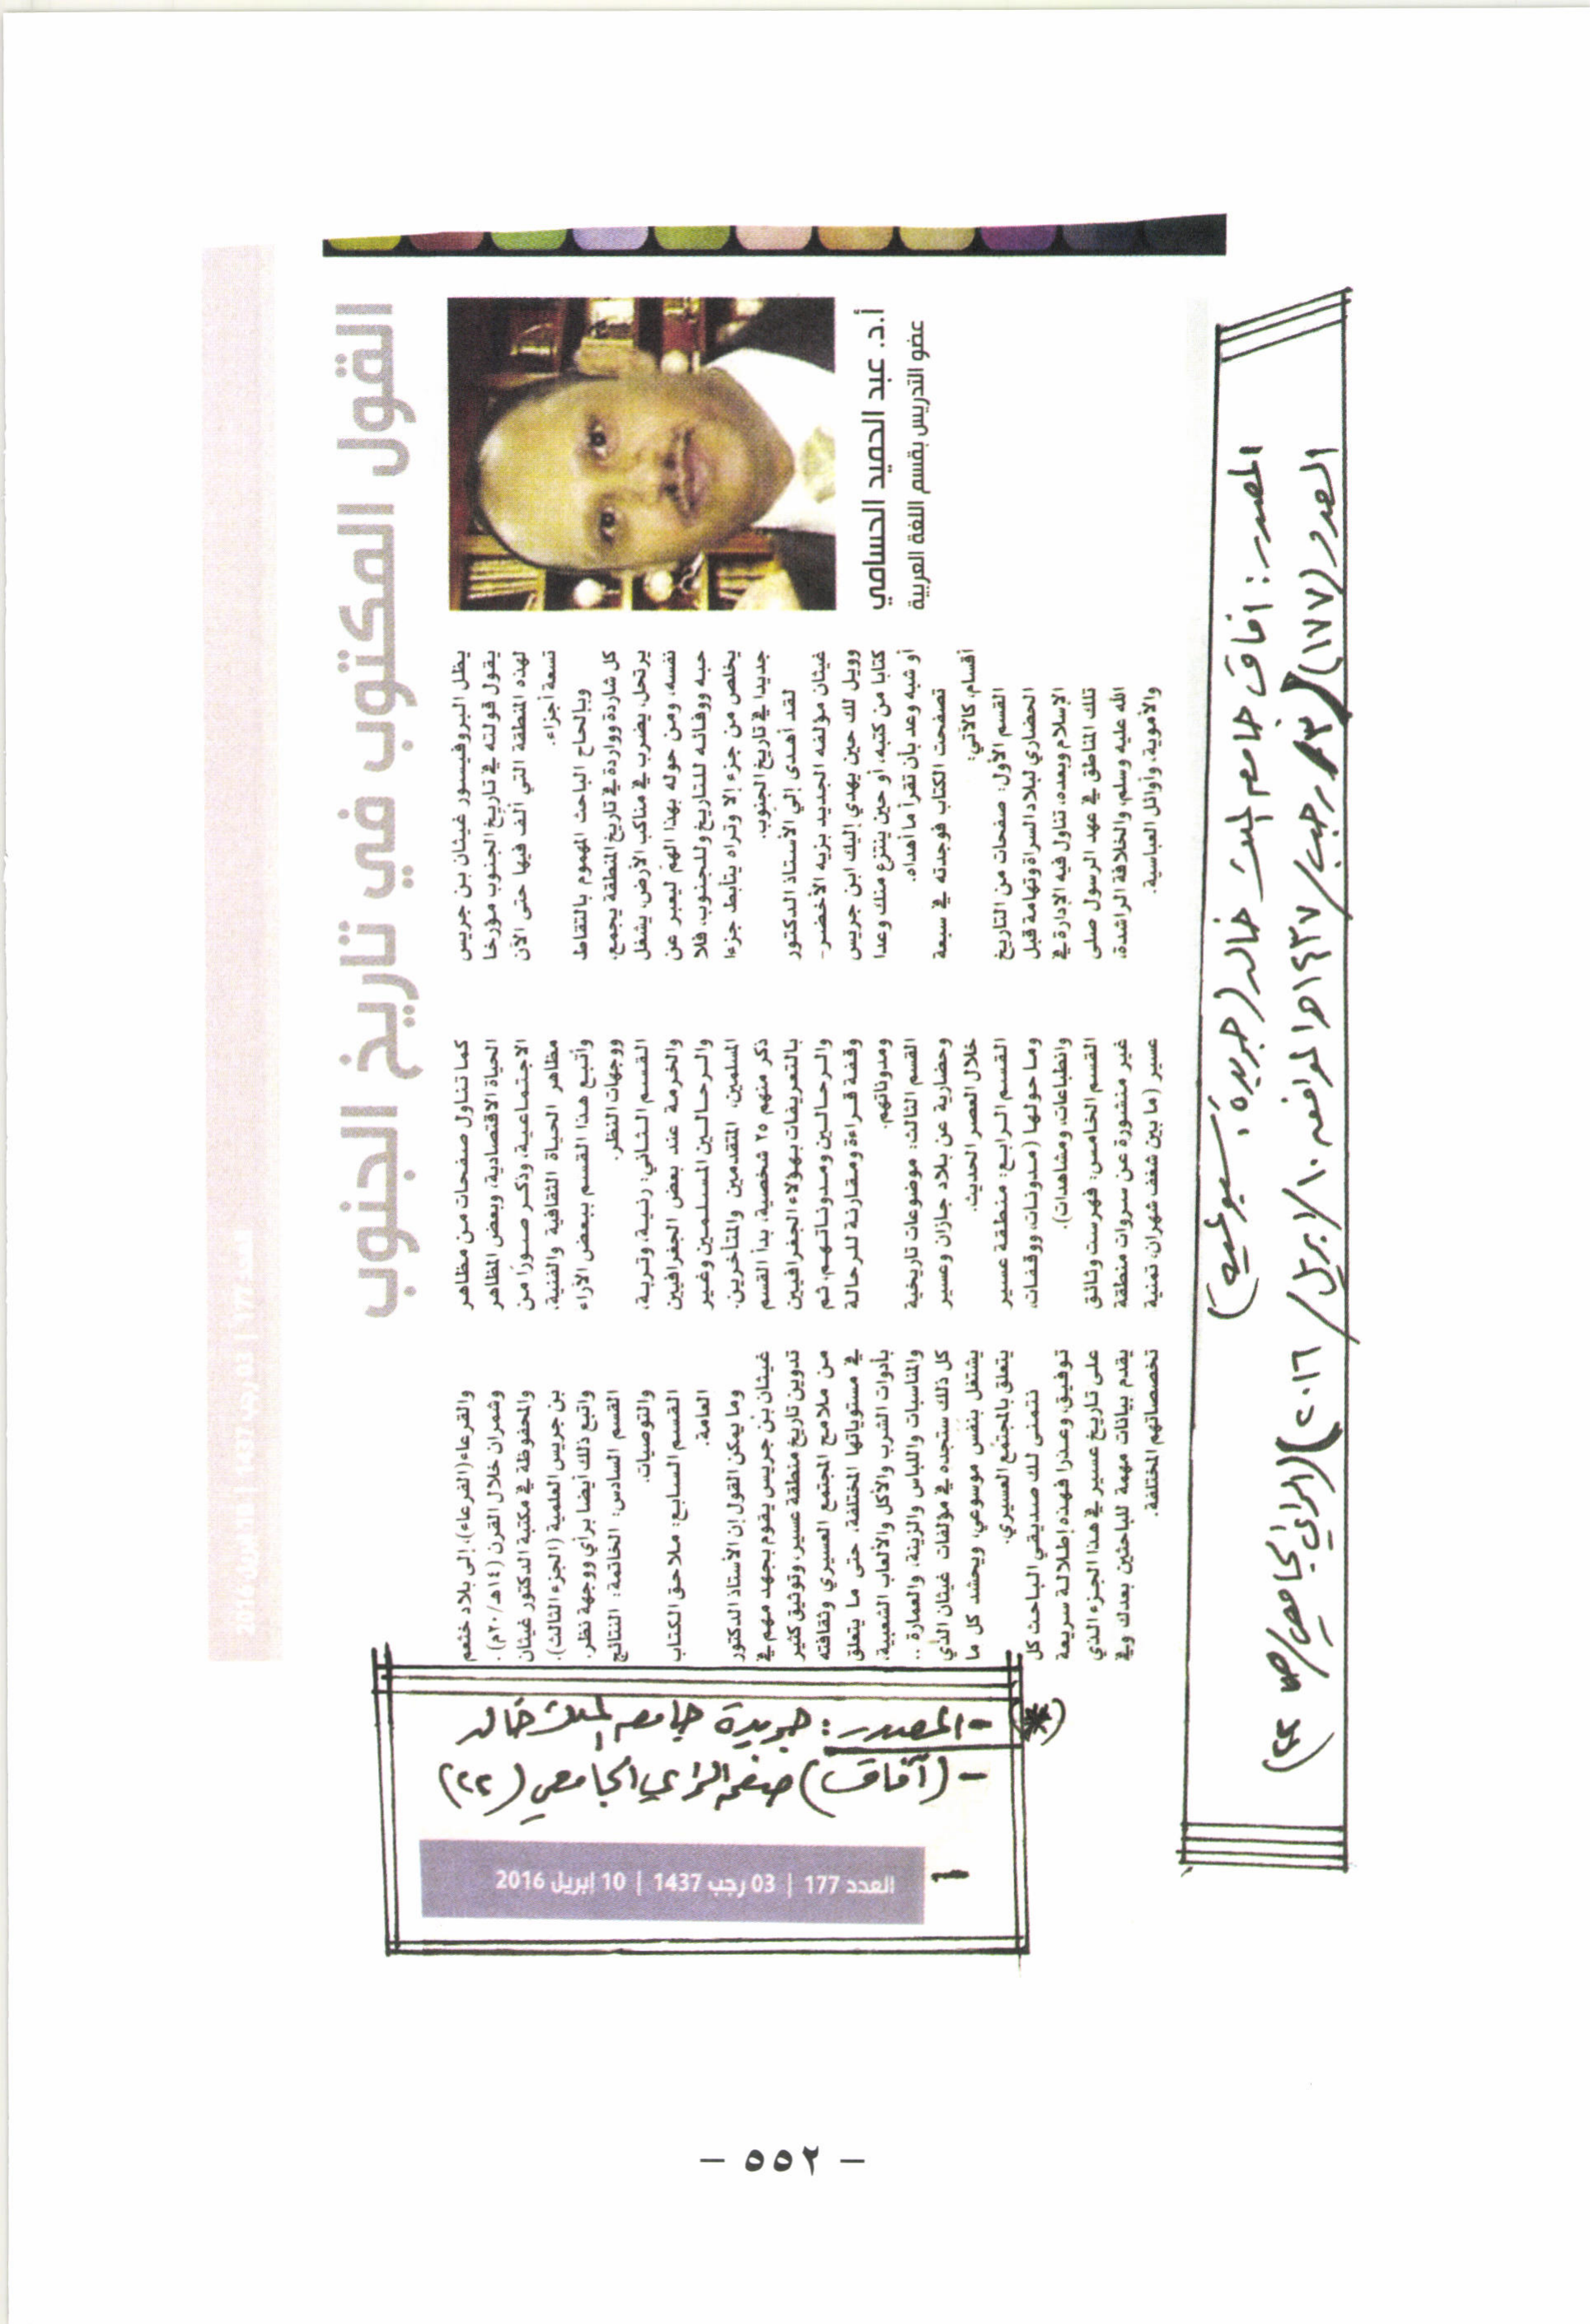 العدد 177 | 03 رجب 1437 | 10 ابريل 2016
القول المكتوب في تاريخ الجنوب
أ.د. عبد الحميد الحسامي
عضو التدريس بقسم اللغة العربية
يظل البروفيسور غيثان بن جريس
يقول قولته في تاريخ الجنوب مؤرخا
لهذه المنطقة التي ألف فيها حتى الآن
تسعة أجزاء.
وبالحاح الباحث المهموم بالتقاط
كل شاردة وواردة في تاريخ المنطقة يجمع،
يرتحل، يضرب في مناكب الأرض، يشغل
نفسه، ومن حوله بهذا الهمّ ليعبر عن
حبه ووفائه للتاريخ وللجنوب، فلا
يخلص من جزء إلا وتراه يتأبط جزءا
جديدا في تاريخ الجنوب.
لقد أهدى إلي الأستاذ الدكتور
غيثان مؤلفه الجديد بزيه الأخضر-
وويل لك حين يهدي إليك ابن جريس
كتابا من كتبه، أو حين ينتزع منك وعدا
أو شبه وعد بأن تقرأ ما أهداه.
تصفحت الكتاب فوجدته في سبعة
أقسام، كالآتي:
القسم الأول: صفحات من التاريخ
الحضاري لبلاد السراة وتهامة قبل
الإسلام وبعده، تناول فيه الإدارة في
تلك المناطق في عهد الرسول صلى
الله عليه وسلم، والخلافة الراشدة،
والأموية، وأوائل العباسية.
كما تناول صفحات من مظاهر
الحياة الاقتصادية، وبعض المظاهر
الاجتماعية، وذكر صورًا من
مظاهر الحياة الثقافية والفنية،
وأتبع هذا القسم ببعض الآراء
ووجهات النظر.
القسم الثاني: رنية، وتربة،
والخرمة عند بعض الجغرافيين
والرحالين المسلمين وغير
المسلمين، المتقدمين والمتأخرين.
ذكر منهم ٢٥ شخصية، بدأ القسم
بالتعريفات بهؤلاء الجغرافيين
والرحالين ومدوناتهم، ثم
وقفة قراءة ومقارنة للرحالة
ومدوناتهم.
القسم الثالث: موضوعات تاريخية
وحضارية عن بلاد جازان وعسير
خلال العصر الحديث.
القسم الرابع: منطقة عسير
وما حولها (مدونات، ووقفات،
وانطباعات، ومشاهدات).
القسم الخامس: فهرست وثائق
غير منشورة عن سروات منطقة
عسير (ما بين شعف شهران، تمنية
والقرعاء (الفرعاء)، إلى بلاد خثعم
وشمران خلال القرن (١٤هـ/٢٠م).
والمحفوظة في مكتبة الدكتور غيثان
بن جريس العلمية (الجزء الثالث).
واتبع ذلك أيضا برأي ووجهة نظر.
القسم السادس: الخاتمة: النتائج
والتوصيات.
القسم السابع: ملاحق الكتاب
العامة.
وما يمكن القول إن الأستاذ الدكتور
غيثان بن جريس يقوم بجهد مهم في
تدوين تاريخ منطقة عسير، وتوثيق كثير
من ملامح المجتمع العسيري وثقافته
في مستوياتها المختلفة، حتى ما يتعلق
بأدوات الشرب والأكل والألعاب الشعبية،
والمناسبات واللباس والزينة، والعمارة ..
كل ذلك ستجده في مؤلفات غيثان الذي
يشتغل بنفس موسوعي، ويحشد كل ما
يتعلق بالمجتمع العسيري.
نتمنى لك صديقي الباحث كل
توفيق، وعذرا فهذه إطلالة سريعة
على تاريخ عسير في هذا الجزء الذي
يقدم بيانات مهمة للباحثين بعدك وفي
تخصصاتهم المختلفة.
(*) - المصدر: جريدة جامعة الملك خالد
- (آفاق) صفحة الرأي الجامعي (٢٢)
- العدد 177 | 03 رجب 1437 | 10 ابريل 2016
المصدر: آفاق جامعة الملك خالد (جريدة أسبوعية)
العدد (١٧٧) (٣/رجب/١٤٣٧ه الموافق ١٠/ابريل/٢٠١٦) (الرأي الجامعي/ص ٢٢)
- ٥٥٢ -